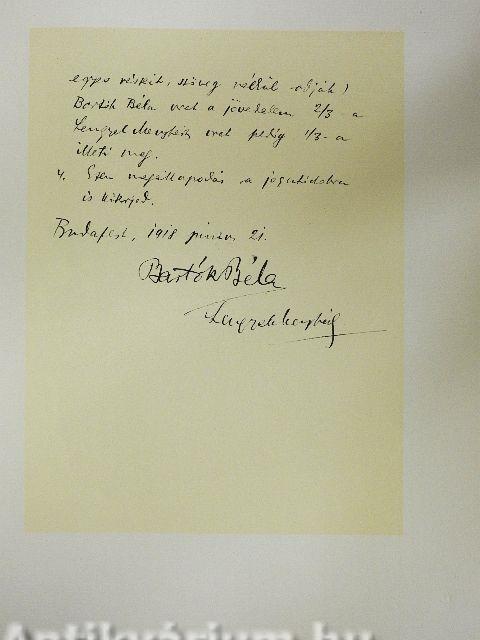 egyes részeit, szöveg nélkül adják)
Bartók Béla urat a jövedelem 2/3-a
Lengyel Menyhért urat pedig 1/3-a
illeti meg.
4. Ezen megállapodás a jogutódokra
is kiterjed.
Budapest, 1918 június 21.
Bartók Béla
Lengyel Menyhért
Antikvárium.hu